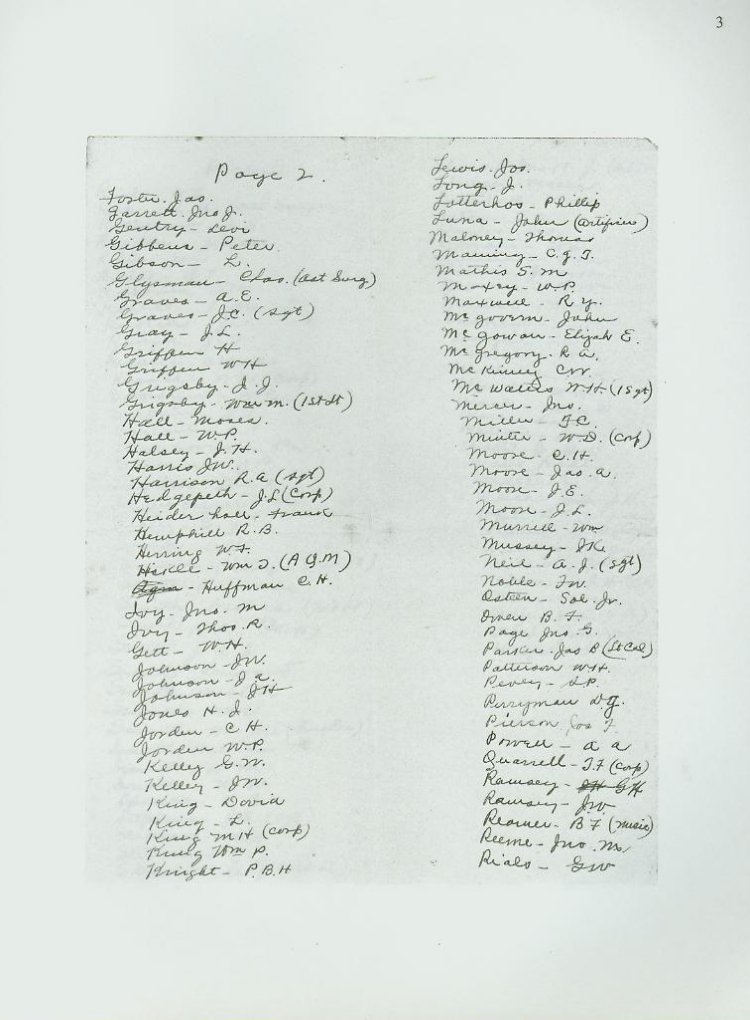 3
Page 2.
Foster. Jas.
Garrett. Jno J.
Gentry - Levi
Gibbens - Peter
Gibson - L.
Glysman - Chas. (ast Surg)
Graves - A. E.
Graves - J.C. (Sgt)
Gray - J. L.
Griffen H
Griffen W H
Grigsby - J. J.
Grigsby - Wm m. (1st Lt)
Hall - Moses.
Hall - W.P.
Halsey - J. H.
Harris JW.
Harrison R. A (Sgt)
Hedgepeth - J.L (Corp)
Heider hall - Frank
Hemphill R. B.
Herring W.F.
Wm J. (A Q.M)
Aqm - Huffman C. H.
Ivy - Jno. M
Ivy - Thos. R.
Jett - W. H.
Johnson - JW.
Johnson - J a.
Johnson - J H
Jones H. J.
Jorden - C H.
Jorden W.P.
Kelley G. W.
Kelley - JW.
King - David
King - L.
King M H (Corp)
King Wm P.
Knight - P. B. H
Lewis. Jos.
Long - J.
Lotterhos - Phillip
Luna - John (artificer)
Maloney - Thomas
Manning - C. J. T.
Mathis S. M
Maxey - W. P.
Maxwell - R. Y.
McGovern - John
McGowan - Elijah E.
McGregory - R a.
McKinney CW.
McWalters W. H. (1 Sgt)
Mercer - Jno.
Miller - F C.
Minter - W. D. (Corp)
Moore - C. H.
Moore - Jas. a.
Moore - J. E.
Moore - J. L.
Murrell - Wm
Mussey - J K.
Neil - A. J. (Sgt)
Noble - F W.
Ostien - Sol. Jr.
Owen B. F.
Page Jno. G.
Parker - Jas P (Lt Col)
Patterson W. H.
Pevey - S. P.
Perryman D. G.
Pierson Jos F.
Powell - a a
Quarrell - T. F (Corp)
Ramsey - JH G H
Ramsey - JW.
Reamer - B F (music)
Reeme - Jno. M.
Rials - G W